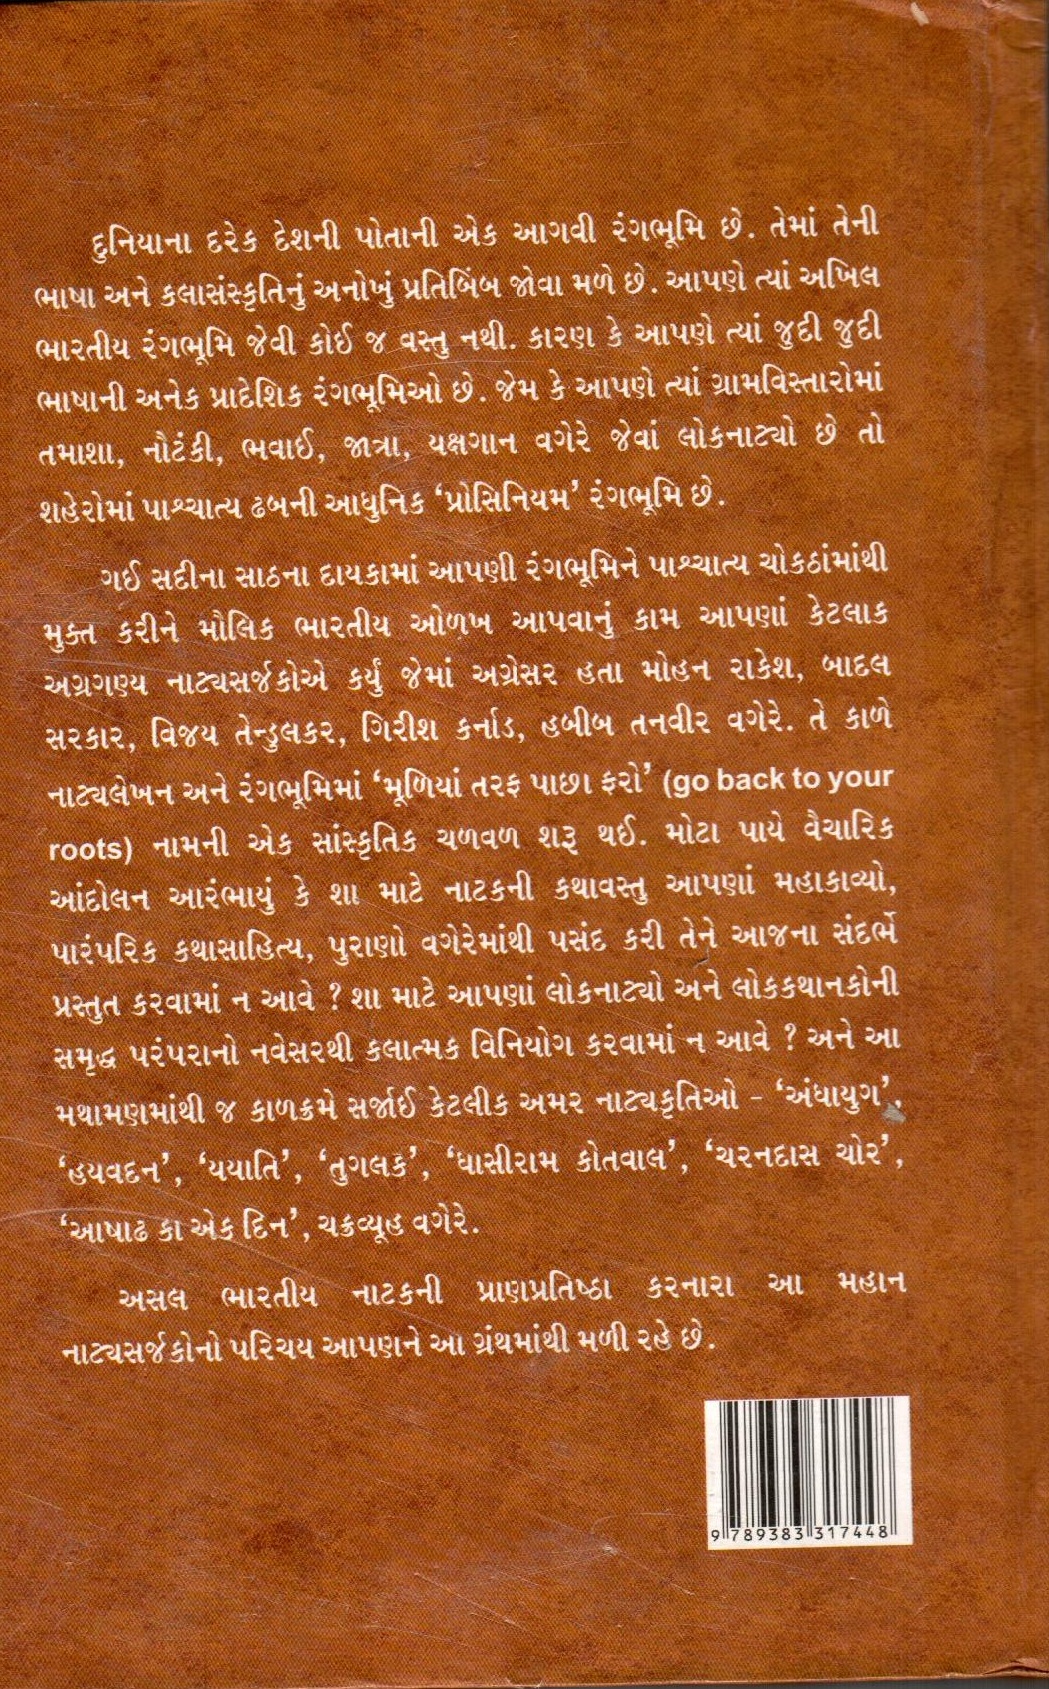 દુનિયાના દરેક દેશની પોતાની એક આગવી રંગભૂમિ છે. તેમાં તેની
ભાષા અને કલાસંસ્કૃતિનું અનોખું પ્રતિબિંબ જોવા મળે છે. આપણે ત્યાં અખિલ
ભારતીય રંગભૂમિ જેવી કોઈ જ વસ્તુ નથી. કારણ કે આપણે ત્યાં જુદી જુદી
ભાષાની અનેક પ્રાદેશિક રંગભૂમિઓ છે. જેમ કે આપણે ત્યાં ગ્રામવિસ્તારોમાં
તમાશા, નૌટંકી, ભવાઈ, જાત્રા, યક્ષગાન વગેરે જેવાં લોકનાટ્યો છે તો
શહેરોમાં પાશ્ચાત્ય ઢબની આધુનિક ‘પ્રોસિનિયમ’ રંગભૂમિ છે.
ગઈ સદીના સાઠના દાયકામાં આપણી રંગભૂમિને પાશ્ચાત્ય ચોકઠાંમાંથી
મુક્ત કરીને મૌલિક ભારતીય ઓળખ આપવાનું કામ આપણાં કેટલાક
અગ્રગણ્ય નાટ્યસર્જકોએ કર્યું જેમાં અગ્રેસર હતા મોહન રાકેશ, બાદલ
સરકાર, વિજય તેન્ડુલકર, ગિરીશ કર્નાડ, હબીબ તનવીર વગેરે. તે કાળે
નાટ્યલેખન અને રંગભૂમિમાં ‘મૂળિયાં તરફ પાછા ફરો’ (go back to your
roots) નામની એક સાંસ્કૃતિક ચળવળ શરૂ થઈ. મોટા પાયે વૈચારિક
આંદોલન આરંભાયું કે શા માટે નાટકની કથાવસ્તુ આપણાં મહાકાવ્યો,
પારંપરિક કથાસાહિત્ય, પુરાણો વગેરેમાંથી પસંદ કરી તેને આજના સંદર્ભે
પ્રસ્તુત કરવામાં ન આવે ? શા માટે આપણાં લોકનાટ્યો અને લોકકથાનકોની
સમૃદ્ધ પરંપરાનો નવેસરથી કલાત્મક વિનિયોગ કરવામાં ન આવે ? અને આ
મથામણમાંથી જ કાળક્રમે સર્જાઈ કેટલીક અમર નાટ્યકૃતિઓ - ‘અંધાયુગ’,
‘હયવદન’, ‘યયાતિ’, ‘તુગલક’, ‘ઘાસીરામ કોતવાલ’, ‘ચરનદાસ ચોર’,
‘આષાઢ કા એક દિન’, ચક્રવ્યૂહ વગેરે.
અસલ ભારતીય નાટકની પ્રાણપ્રતિષ્ઠા કરનારા આ મહાન
નાટ્યસર્જકોનો પરિચય આપણને આ ગ્રંથમાંથી મળી રહે છે.
9 789383 317448